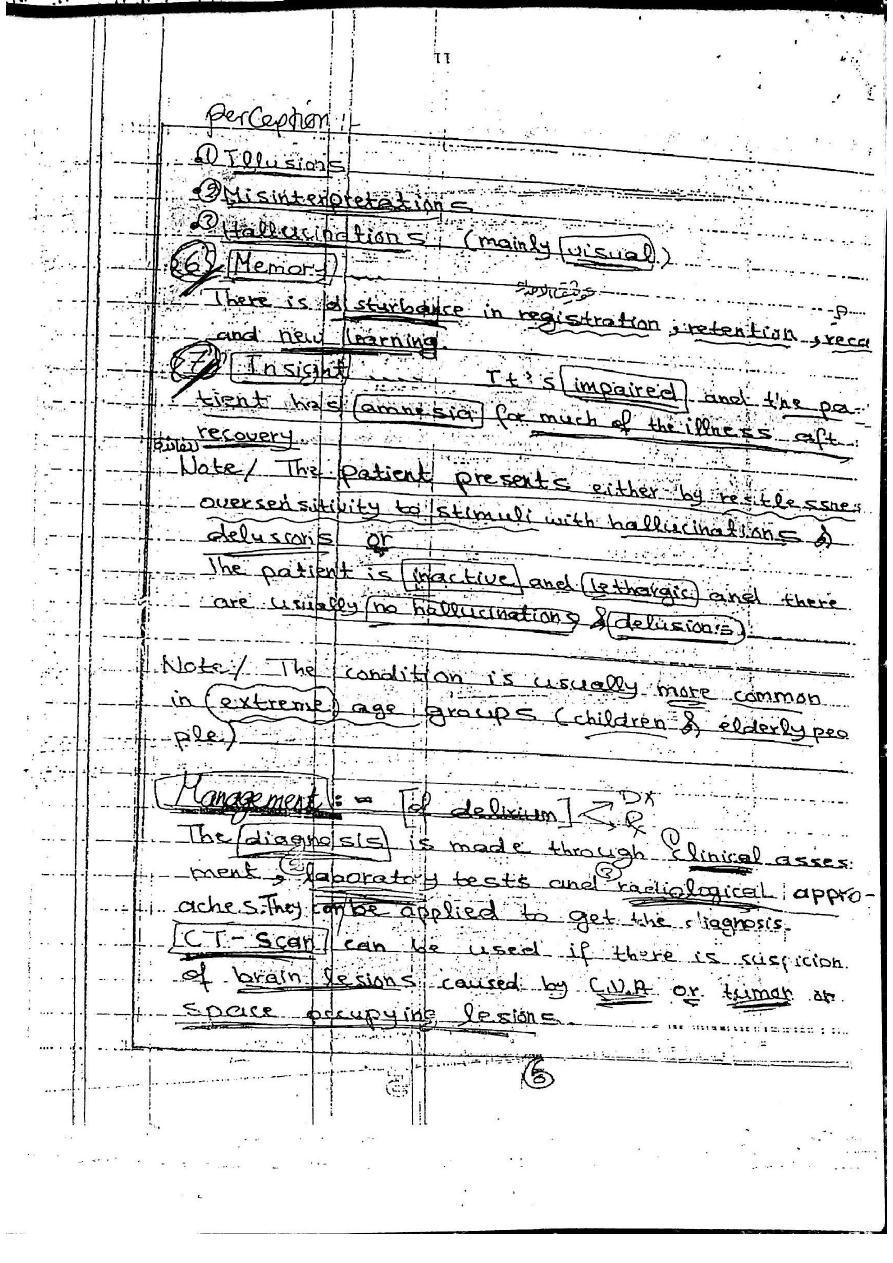 11
perception :-
① Illusions
② Misinterpretations
③ Hallucinations (mainly visual)
6 Memory
There is disturbance in registration, retention, reca
and new learning
7 Insight It's impaired and the pa-
tient has amnesia for much of the illness aft
recovery
Note/ The patient presents either by restlessnes
oversensitivity to stimuli with hallucinations &
delusions or
The patient is inactive and lethargic and there
are usually no hallucinations & delusions
Note:/ The condition is usually more common
in (extreme) age groups (children & elderly peo
ple)
Management :- [of delirium] DX
Rx
The diagnosis is made through ① clinical asses
ment, ② laboratory tests and ③ radiological appro-
aches. They can be applied to get the diagnosis.
CT-Scan can be used if there is suspicion
of brain lesions caused by C.V.A or tumor or
space occupying lesions.
6